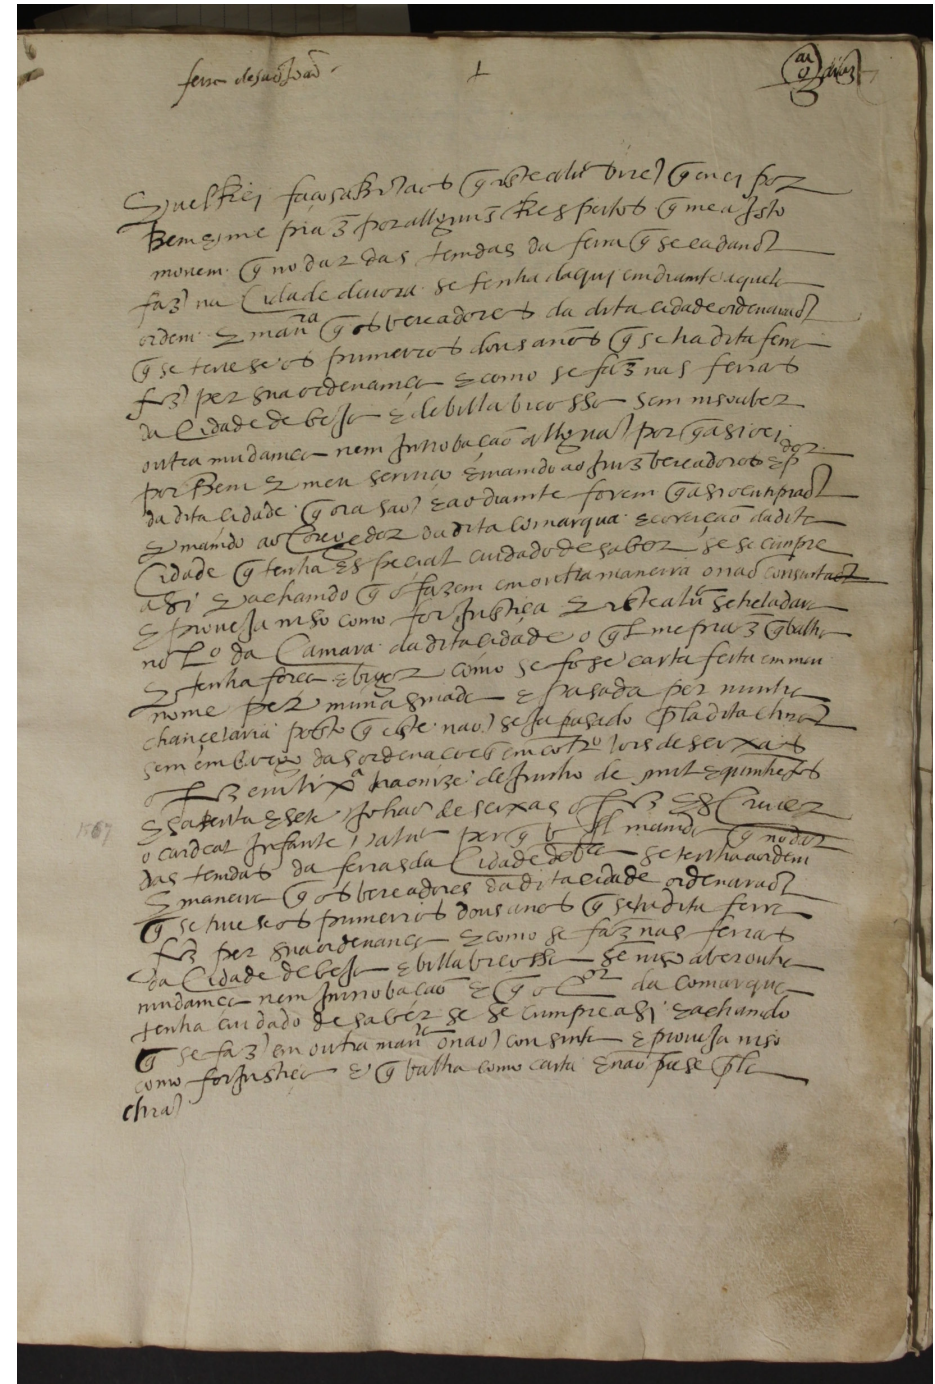 feira de são Joaõ
Eu el Rej faço saber aos q̃ este aluara virẽ q̃ eu ej por
bem & me praz por alguns Respeitos q̃ me a jsto
movem q̃ no dar das temdas da feira q̃ se cada anno
faz na Cidade deuora se tenha daqui em diante aquela
ordem & manra q̃ os vereadores da dita cidade ordenaraõ
q̃ se teue se os primeiros dous anos q̃ se ha dita feira
fez per sua ordenamça & como se faz nas feiras
da Cidade de beja & de billa bicossa sem niso aber
outra mudamça nem Innobação allgũa porq̃ asi o ej
por Bem & meu seruiço & mando ao Juiz bereadores & pdor
da dita cidade q̃ ora são & ao diante forem q̃ asi o cumpraõ
& mamdo ao Coregedor da dita Comarqua & coreição da dita
Cidade q̃ tenha Especial cuidado de saber se se cumpre
asi & achamdo q̃ o fazem em outra maneira o nao consinta
& proueja niso como for Justiça & este alura se treladara
no Lo da Camara da dita cidade o ql me praz q̃ balha
& tenha força & bigor como se fose carta feita em meu
nome per mim asinada & pasada per minha
chancelaria posto q̃ este nao seja pasado pla dita chrã
sem embargo das ordenacoes em cotro Jorge de seixas
o fez em lixa a onze de Junho de mil & quinhẽtos
& saseuta & sete Johaõ de seixas o fez Escreuer
1567
o cardeal Infante Aluara per q̃ V A manda q̃ no dar
das temdas da feira da Cidade de evora se tenha a ordem
& maneira q̃ os bereadores da dita cidade ordenaraõ
q̃ se tiue se os primeiros dous anos q̃ se ha dita feira
fez per sua ordenança & como se faz nas feiras
da Cidade de beja & billa bicossa sẽ niso aber outra
mudamça nem Innobação & q̃ o Cor da comarqua
tenha cuidado de saber se se cumpre asi & achamdo
q̃ se faz em outra manra o nao consinta & proueja niso
como for Justiça & q̃ balha como carta & não pase pla
chrã